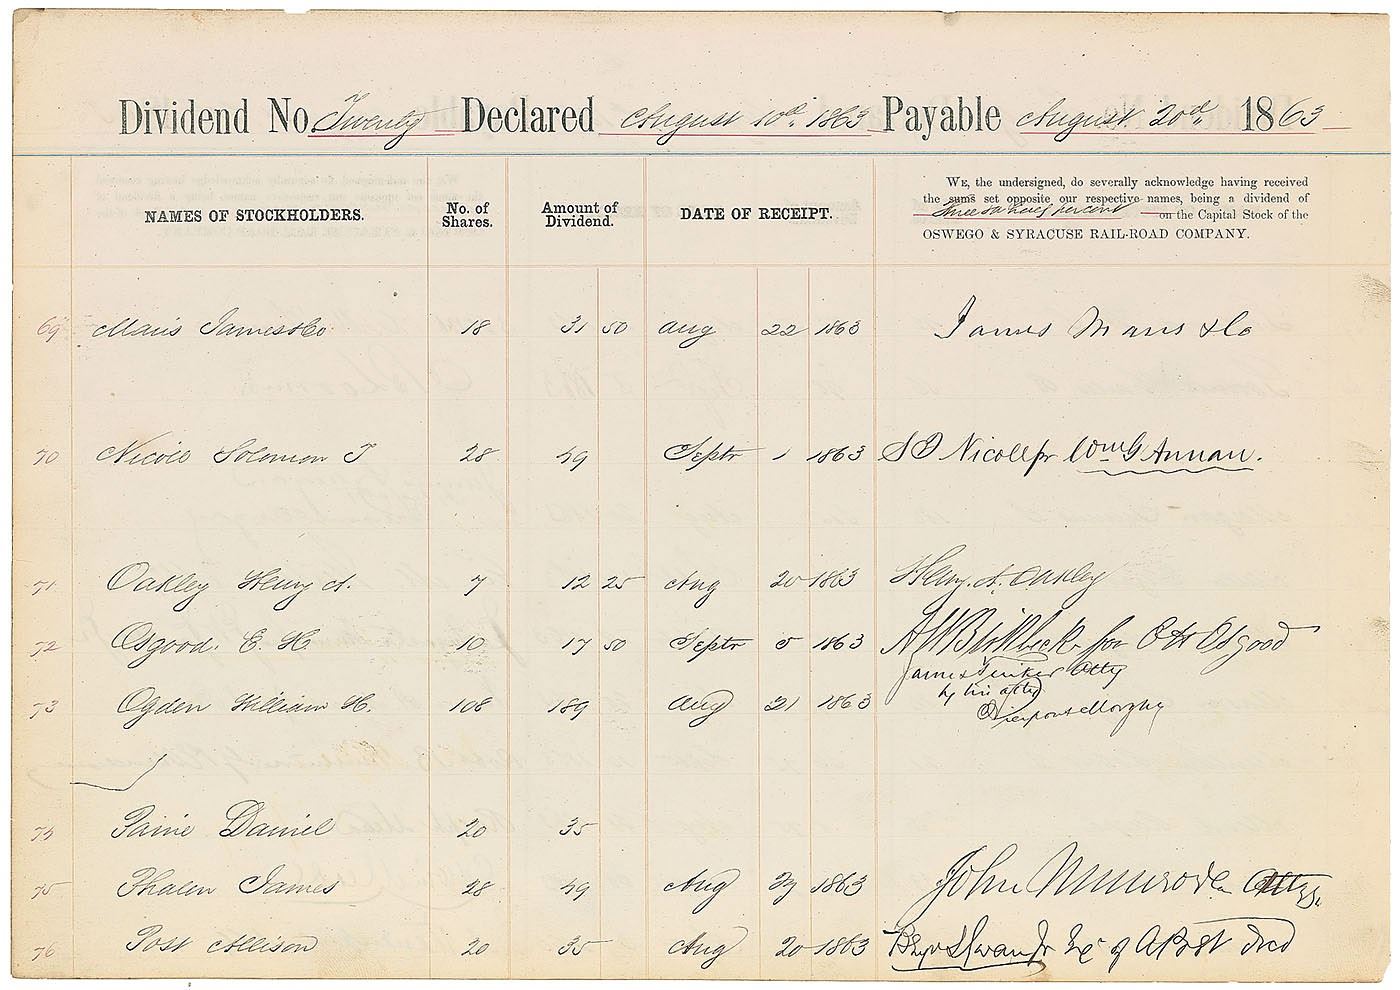 Dividend No. Twenty Declared August 10th 1863 Payable August 20th 1863
NAMES OF STOCKHOLDERS. No. of Shares. Amount of Dividend. DATE OF RECEIPT.
WE, the undersigned, do severally acknowledge having received
the sums set opposite our respective names, being a dividend of
Three & a half percent on the Capital Stock of the
OSWEGO & SYRACUSE RAIL-ROAD COMPANY.
69 Maris James & Co 18 31 50 Aug 22 1863 James Maris & Co
70 Nicoll Solomon T 28 49 Septr 1 1863 S T Nicoll pr Wm G Annan.
71 Oakley Henry A. 7 12 25 Aug 20 1863 Henry A. Oakley
72 Osgood. E. H. 10 17 50 Septr 5 1863 Birkbeck for E H Osgood
James Tinker Atty
73 Ogden William H. 108 189 Aug 21 1863 by his atty
Pierpont Morgan
74 Paine Daniel 20 35
75 Phalen James 28 49 Aug 1863 John Munroe Atty
76 Post Allison 20 35 Aug 20 1863 Benj L Swan Jr Ex of A Post Decd